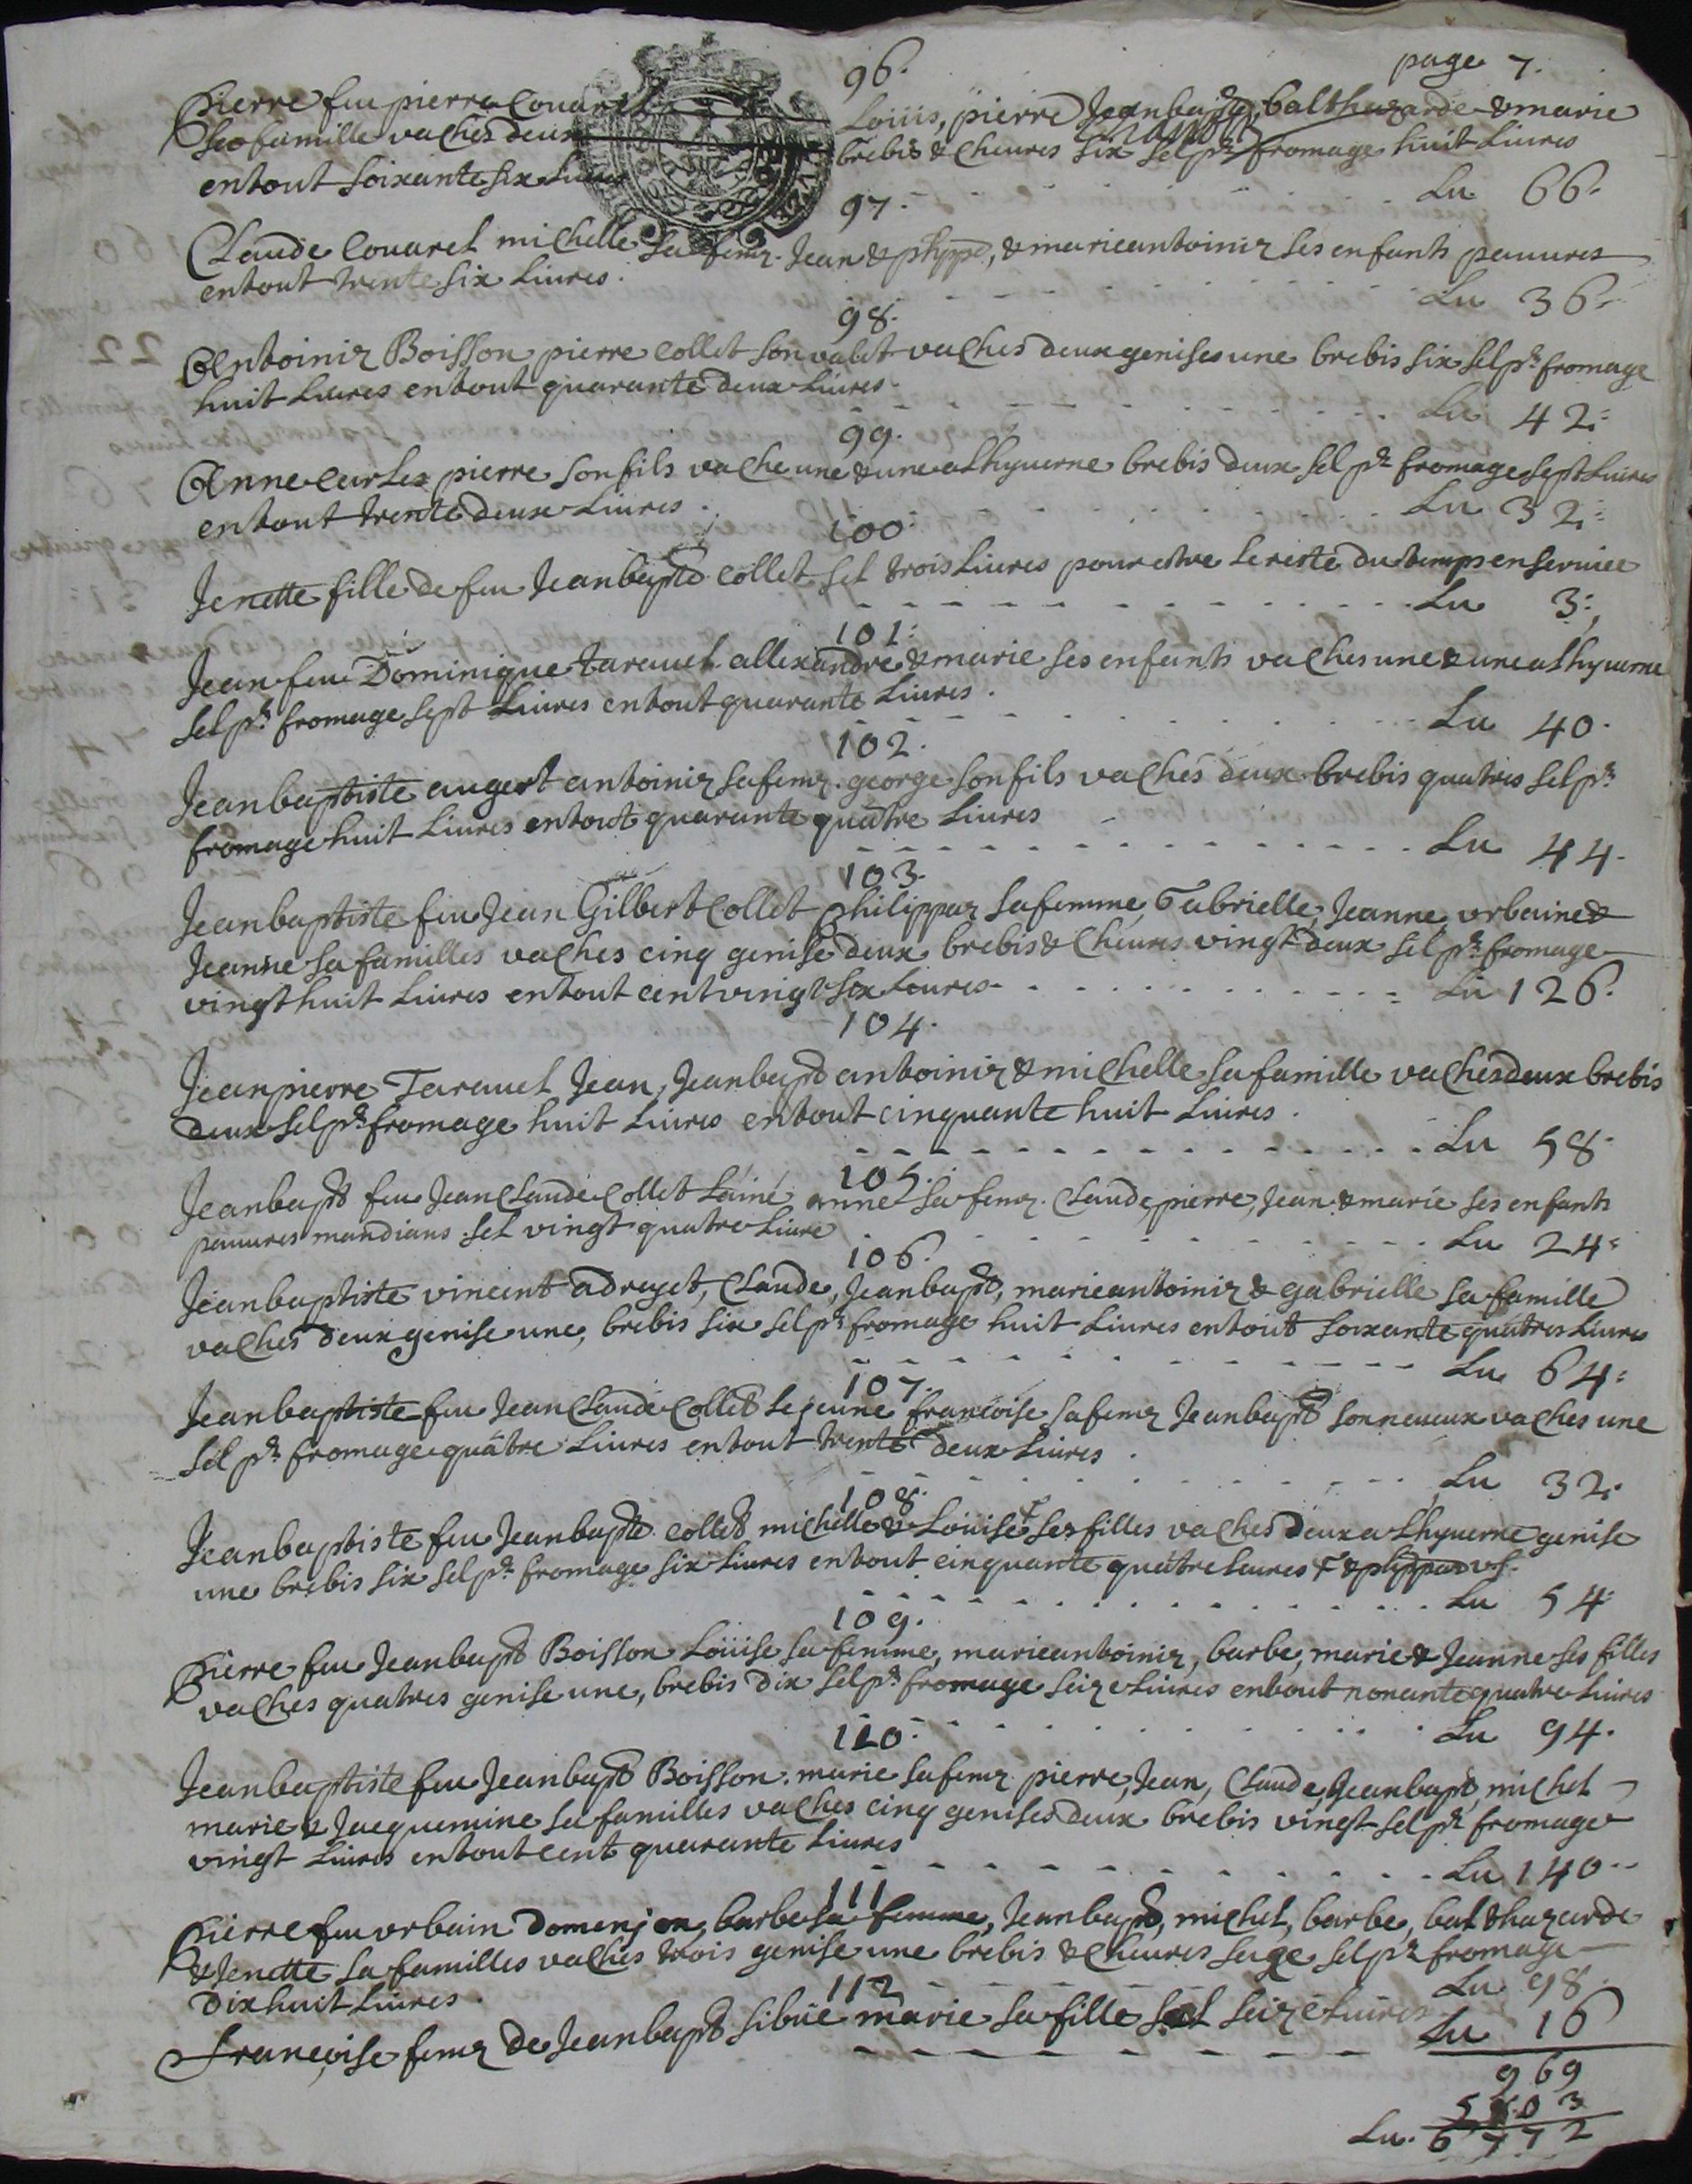 page 7.
96.
Pierre feu pierre Couarel Loüis, pierre Jeanbapte, balthazarde & marie
sa famille vaches deux brebis & cheures six sel pr. fromage huit Liures
entout soixante six Liures Lu 66.
97.
Claude Couarel michelle sa femz. Jean & phpp, & marieantoiniz ses enfants pauures
entout trente six Liures. Lu 36.
98.
Antoiniz Boisson pierre collet son valet vaches deux genises une brebis six sel pr. fromage
huit Liures entout quarante deux Liures. Lu 42.
99.
Anne pierre son fils vache une & une a Lhyuerne brebis deux sel pr. fromage sept Liures
entout trente deux Liures. Lu 32.
100.
Jenette fille de feu Jeanbapte. collet sel trois Liures pour estre le reste du temps en seruice
Lu 3.
101.
Jean feu Dominique Tarauel allexandre & marie ses enfants vaches une & une a Lhyuerne
sel pr. fromage sept Liures entout quarante Liures. Lu 40.
102.
Jeanbaptiste augert antoiniz sa femz. george son fils vaches deux brebis quatres sel pr.
fromage huit Liures entout quarante quatre Liures
Lu 44.
103.
Jeanbaptiste feu Jean Gilbert Collet philippaz sa femme, Gabrielle, Jeanne, vrbaine &
Jeanne sa familles vaches cinq genise deux brebis & cheures vingt deux sel pr. fromage
vingt huit Liures entout cent vingt six Liures. Lu 126.
104.
Jean pierre Tarauel Jean, Jeanbapt antoiniz & michelle sa famille vaches deux brebis
deux sel pr. fromage huit Liures entout cinquante huit Liures.
Lu 58.
105.
Jeanbapt feu Jean Claude Collet Lainé anne sa femz. Claude, pierre, Jean & marie ses enfants
pauures mandians sel vingt quatre Liure Lu 24.
106.
Jeanbaptiste vincent adreyet, Claude, Jeanbapt, marieantoiniz & gabrielle sa famille
vaches deux genise une, brebis six sel pr. fromage huit Liures entout soixante quatres Liures
Lu 64.
107.
Jeanbaptiste feu Jean Claude Collet Le jeune françoise sa femz Jeanbapt son neueux vaches une
sel pr. fromage quatre Liures entout trente deux Liures.
Lu 32.
108.
Jeanbaptiste feu Jeanbapte. collet michelle & Loüise ses filles vaches deux a Lhyuerne genise
une brebis six sel pr. fromage six Liures entout cinquante quatre Liures
Lu 54
109.
Pierre feu Jeanbapt Boisson Loüise sa femme, marieantoiniz, barbe, marie & Jeanne ses filles
vaches quatres genise une, brebis dix sel pr. fromage seize Liures entout nonante quatre Liures
Lu 94.
110.
Jeanbaptiste feu Jeanbapt Boisson. marie sa femz pierre, Jean, Claude, Jeanbapt, michel
marie & Jacquemine sa familles vaches cinq genises deux brebis vingt sel pr fromage
vingt Liures entout cent quarante Liures
Lu 140.
111
Pierre feu vrbain Domenjon, barbe sa femme, Jeanbapt, michel, barbe, balthazarde
& Jenette sa familles vaches trois genise une brebis & cheures seize sel pr fromage
Dix huit Liures. Lu 98.
112
Françoise femz de Jeanbapt sibüe marie sa fille sel seize Liures Lu 16
969
5803
Lu. 6772